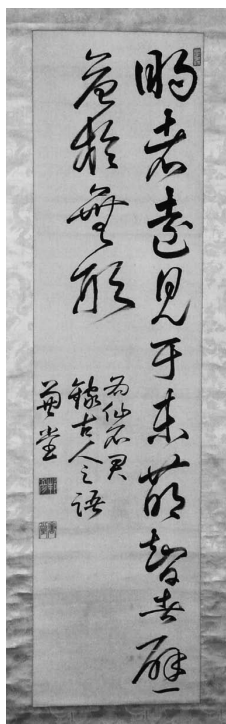 明者遠見于未萌智者避
危於無形
為仙石君
録古人之語